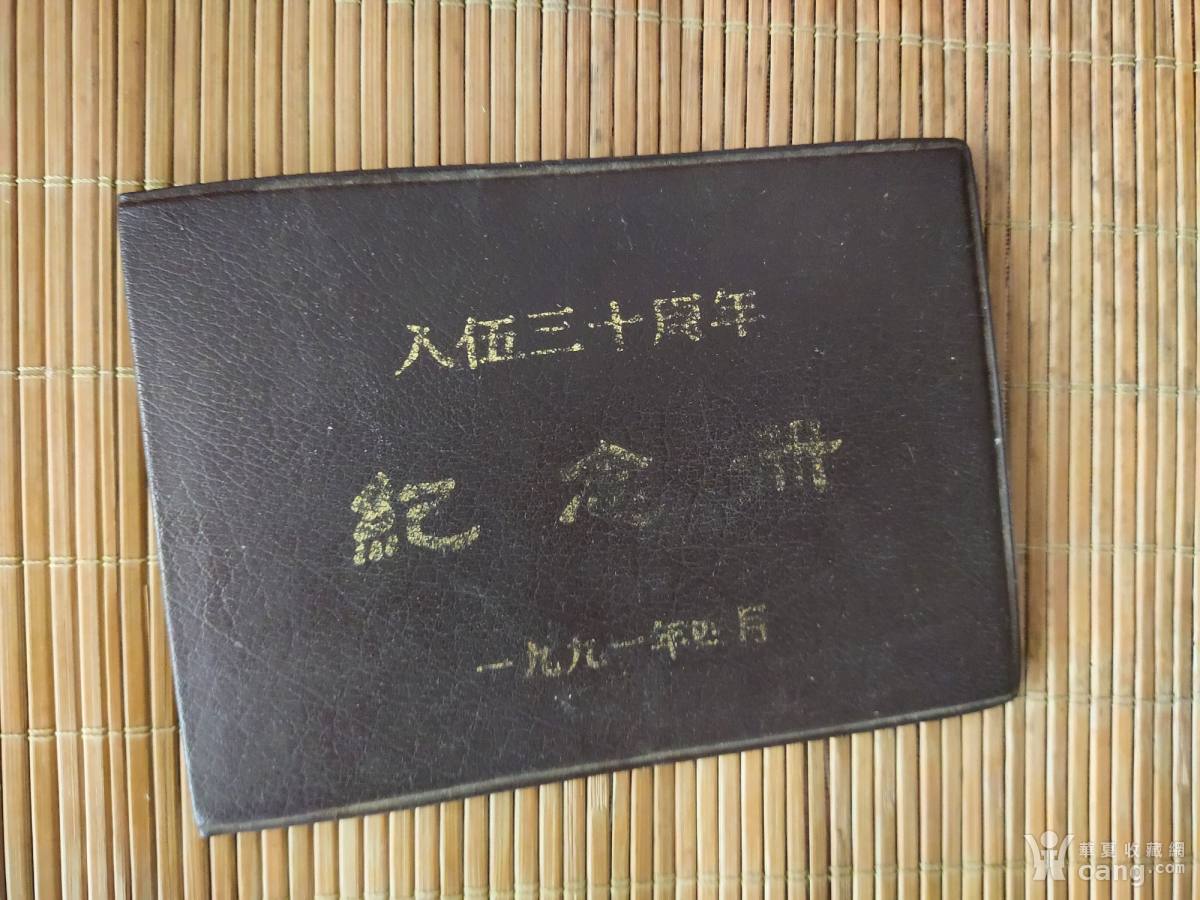 入伍三十周年
紀念册
一九九一年四月
華夏收藏網
cang.com